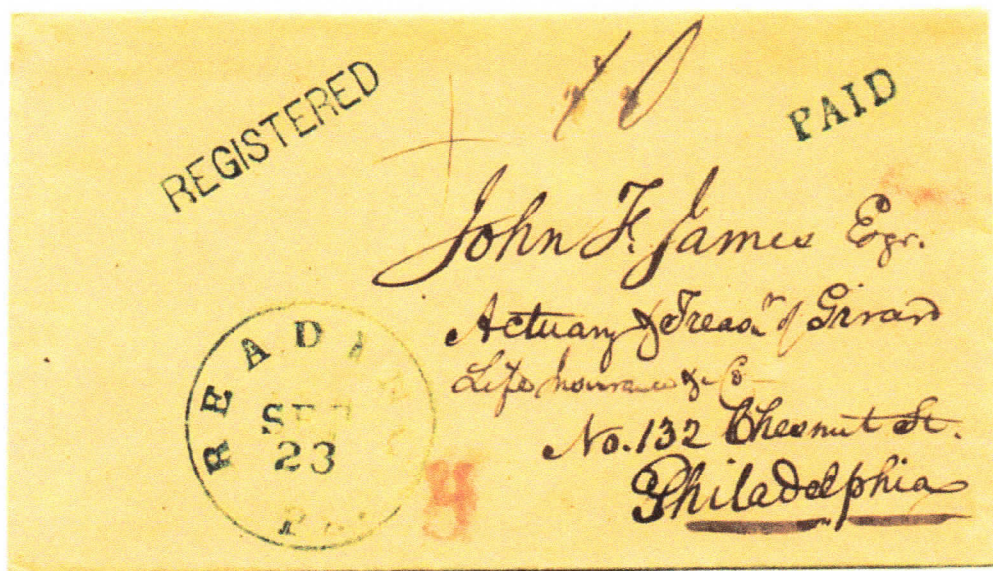 REGISTERED
PAID
John F. James Esqr.
Actuary & Treasr. of Girard
Life Insurance & Co
No. 132 Chesnut St.
Philadelphia
READING
SEP
23
PA.